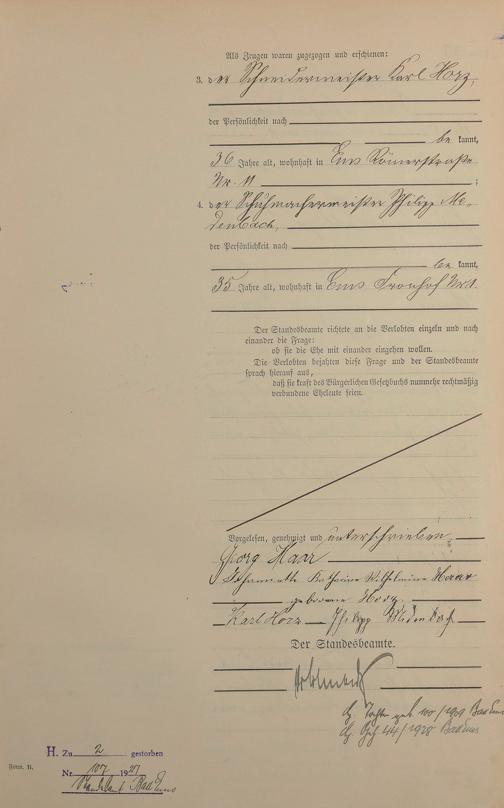 Als Zeugen waren zugezogen und erschienen:
3. der Schneidermeister Karl Horz,
der Persönlichkeit nach
be kannt,
36 Jahre alt, wohnhaft in Ems Römerstraße
Nr. 11 ;
4. der Schuhmachermeister Philipp Me-
denbach,
der Persönlichkeit nach
be kannt,
35 Jahre alt, wohnhaft in Ems Fronhof Nr.
Der Standesbeamte richtete an die Verlobten einzeln und nach
einander die Frage:
ob sie die Ehe mit einander eingehen wollen.
Die Verlobten bejahten diese Frage und der Standesbeamte
sprach hierauf aus,
daß sie kraft des Bürgerlichen Gesetzbuchs nunmehr rechtmäßig
verbundene Eheleute seien.
Vorgelesen, genehmigt und unterschrieben.
Georg Haar
Katharine Wilhelmine Haar
geborene Horz
Karl Horz Philipp
Der Standesbeamte.
Tochter geb. 100/1909 Bad Ems
44/1928 Bad Ems
H. Zu 2 gestorben
Nr 107 19
Standesamt Bad Ems
Form. II.